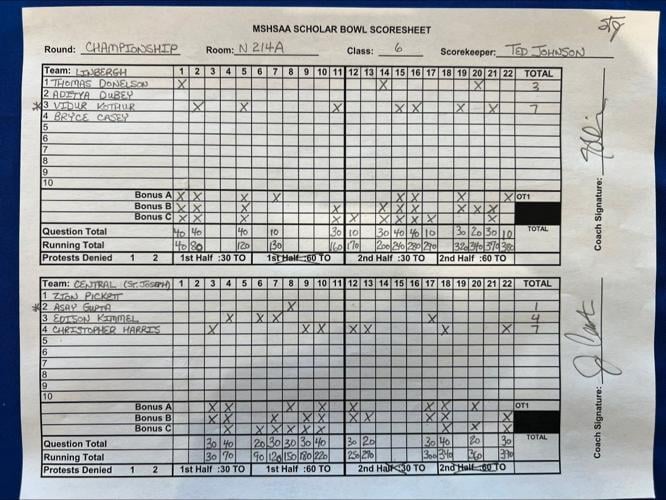 MSHSAA SCHOLAR BOWL SCORESHEET
Round: CHAMPIONSHIP Room: N 214A Class: 6 Scorekeeper: TED JOHNSON
Team: LINBERGH 1 2 3 4 5 6 7 8 9 10 11 12 13 14 15 16 17 18 19 20 21 22 TOTAL
1 THOMAS DONELSON X X X 3
2 ADITYA DUBEY
3 VIDUR KOTHUR X X X X X X X 7
4 BRYCE CASEY
5
6
7
8
9
10
Bonus A X X X X X X X X OT1
Bonus B X X X X X X X X X X
Bonus C X X X X X X X X X X
Question Total 40 40 40 10 30 10 30 40 40 10 30 20 30 10 TOTAL
Running Total 40 80 120 130 160 170 200 240 280 290 320 340 370 380
Protests Denied 1 2 1st Half :30 TO 1st Half :60 TO 2nd Half :30 TO 2nd Half :60 TO
Coach Signature:
Team: CENTRAL (ST. JOSEPH) 1 2 3 4 5 6 7 8 9 10 11 12 13 14 15 16 17 18 19 20 21 22 TOTAL
1 ZION PICKETT
2 ASAY GUPTA X 1
3 EDISON KIMMEL X X X X 4
4 CHRISTOPHER HARRIS X X X X X X X 7
5
6
7
8
9
10
Bonus A X X X X X X X X OT1
Bonus B
Bonus C
Question Total 30 40 20 30 30 30 40 30 20 30 40 20 30 TOTAL
Running Total 30 70 90 120 150 180 220 250 270 300 340 360 390
Protests Denied 1 2 1st Half :30 TO 1st Half :60 TO 2nd Half :30 TO 2nd Half :60 TO
Coach Signature: